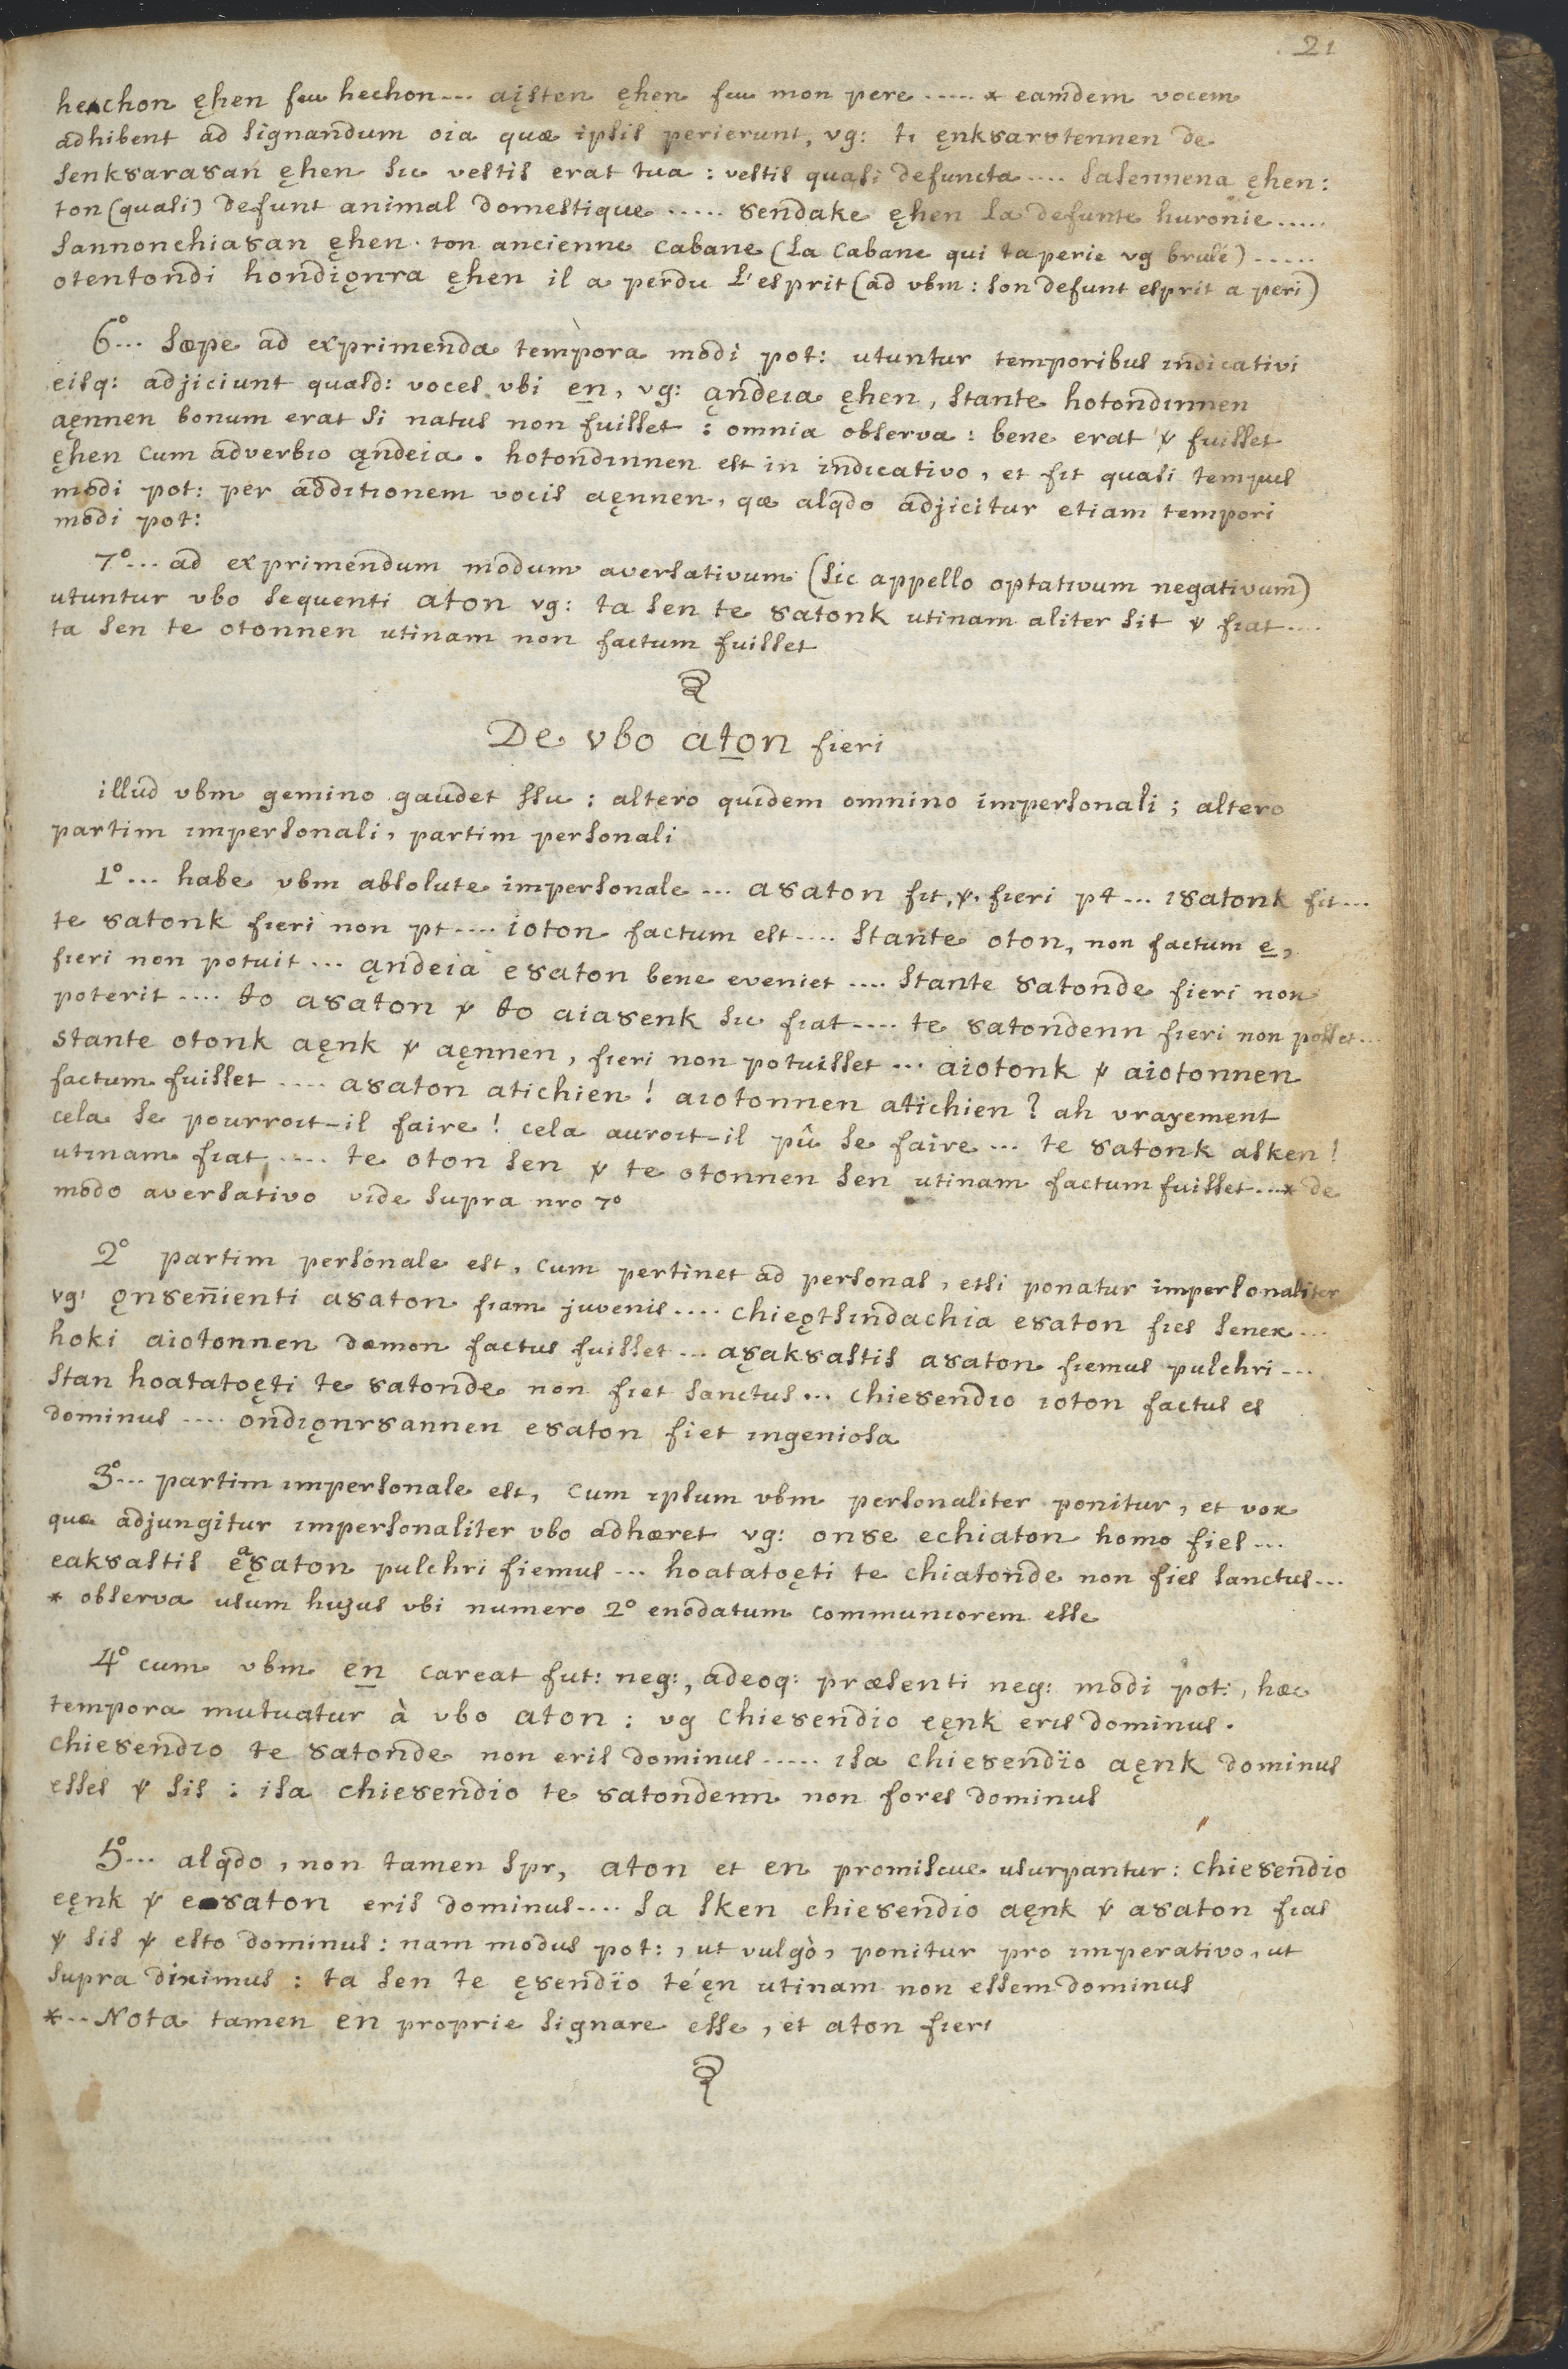 21
heachon ęhen feu hechon... aįsten ęhen feu mon pere ..... * eamdem vocem
adhibent ad signandum oia quæ ipsis perierunt, vg: ti ęnk8ar8tennen de
senk8ara8an ęhen sic vestis erat tua : vestis quasi defuncta .... sasennena ęhen:
ton (quasi) defunt animal domestique ..... 8endake ęhen la defunte huronie .....
sannonchia8an ęhen. ton ancienne cabane (la cabane qui ta perie vg brulé) .....
otentondi hondiǫnra ęhen il a perdu l'esprit (ad vbm : son defunt esprit a peri)
6°... sæpe ad exprimenda tempora modi pot: utuntur temporibus indicativi
eisq: adjiciunt quasd: voces vbi en, vg: ąndeia ęhen, stante hotondinnen
aęnnen bonum erat si natus non fuisset : omnia observa : bene erat ꝟ fuisset
ęhen cum adverbio ąndeia. hotondinnen est in indicativo, et fit quasi tempus
modi pot: per additionem vocis aęnnen, qæ alqdo adjicitur etiam tempori
modi pot:
7°... ad exprimendum modum aversativum (sic appello optativum negativum)
utuntur vbo sequenti aton vg: ta sen te 8atonk utinam aliter sit ꝟ fiat ....
ta sen te otonnen utinam non factum fuisset
De vbo aton fieri
illud vbm gemino gaudet usu : altero quidem omnino impersonali ; altero
partim impersonali, partim personali
1°... habe vbm absolute impersonale ... a8aton fit, ꝟ. fieri pt ... i8atonk fit ...
te 8atonk fieri non pt .... ioton factum est .... stante oton, non factum e,
fieri non potuit ... ąndeia e8aton bene eveniet .... stante 8atonde fieri non
poterit .... to a8aton ꝟ to aia8enk sic fiat .... te 8atondenn fieri non posset ...
stante otonk aęnk ꝟ aęnnen, fieri non potuisset ... aiotonk ꝟ aiotonnen
factum fuisset .... a8aton atichien ! aiotonnen atichien ? ah vrayement
cela se pourroit-il faire ! cela auroit-il pû se faire ... te 8atonk asken !
utinam fiat .... te oton sen ꝟ te otonnen sen utinam factum fuisset ...* de
modo aversativo vide supra nro 7°
2° partim personale est, cum pertinet ad personas, etsi ponatur impersonaliter
vg: ǫn8eñienti a8aton fiam juvenis .... chieǫtsindachia e8aton fies senex ...
hoki aiotonnen dæmon factus fuisset ... aęak8astis a8aton fiemus pulchri ...
stan hoatatoęti te 8atonde non fiet sanctus ... chie8endio ioton factus es
dominus .... ondiǫnr8annen e8aton fiet ingeniosa
3°... partim impersonale est, cum ipsum vbm personaliter ponitur, et vox
quæ adjungitur impersonaliter vbo adhæret vg: on8e echiaton homo fies ...
eak8astis eaę8aton pulchri fiemus ... hoatatoęti te chiatonde non fies sanctus ...
* observa usum hujus vbi numero 2° enodatum communiorem esse
4° cum vbm en careat fut: neg:, adeoq: præsenti neg: modi pot:, hæc
tempora mutuatur à vbo aton : vg chie8endio eęnk eris dominus.
chie8endio te 8atonde non eris dominus ..... isa chie8endïo aęnk dominus
esses ꝟ sis : isa chie8endio te 8atondenn non fores dominus
5°... alqdo, non tamen spr, aton et en promiscue usurpantur : chie8endio
eęnk ꝟ e8aton eris dominus .... sa sken chie8endio aęnk ꝟ a8aton fias
ꝟ sis ꝟ esto dominus : nam modus pot:, ut vulgò, ponitur pro imperativo, ut
supra diximus : ta sen te ę8endïo té ęn utinam non essem dominus
*... Nota tamen en proprie signare esse, et aton fieri